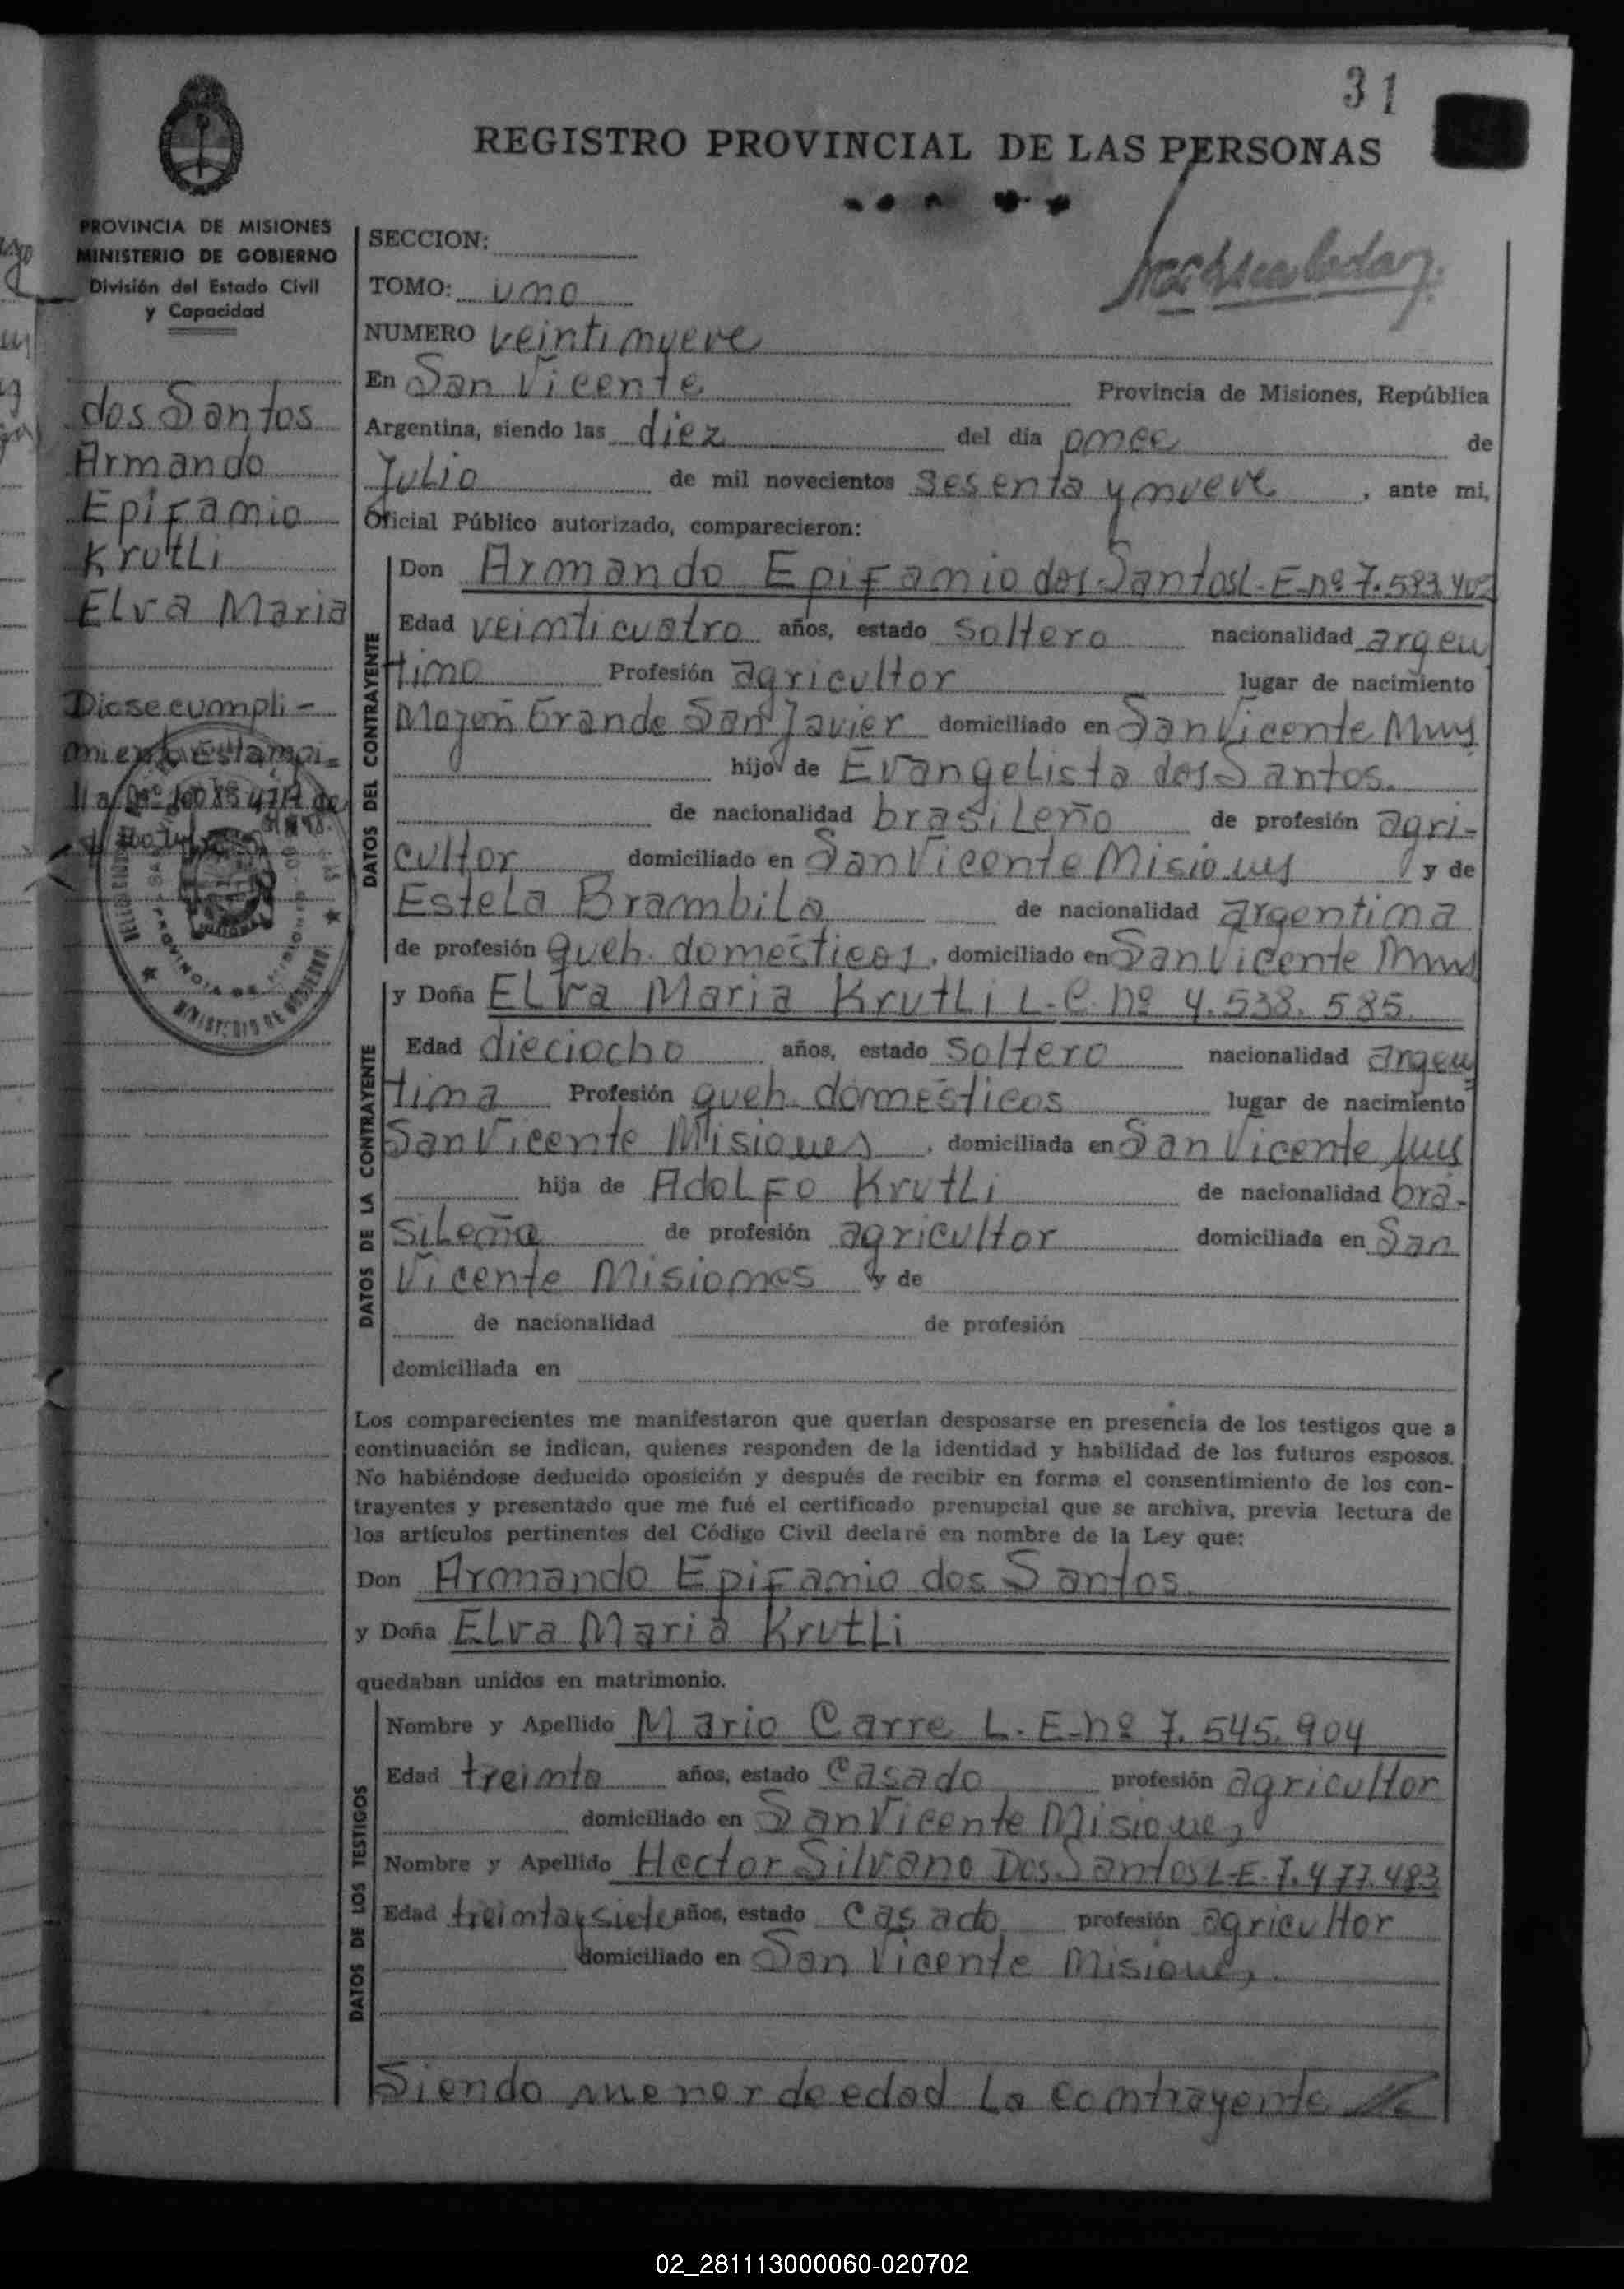 31
REGISTRO PROVINCIAL DE LAS PERSONAS
PROVINCIA DE MISIONES
MINISTERIO DE GOBIERNO
División del Estado Civil
y Capacidad
dos Santos
Armando
Epifanio
Krutli
Elva Maria
Diose cumpli-
miento Estampi=
SECCION:
TOMO: uno
NUMERO veintinueve
En San Vicente Provincia de Misiones, República
Argentina, siendo las diez del día once de
Julio de mil novecientos sesenta y nueve, ante mi,
Oficial Público autorizado, comparecieron:
DATOS DEL CONTRAYENTE
Don Armando Epifanio dos Santos L-E-nº 7.583.402
Edad veinticuatro años, estado soltero nacionalidad argen
tino Profesión agricultor lugar de nacimiento
Mojon Grande San Javier domiciliado en San Vicente Mnes
hijo de Evangelista dos Santos.
de nacionalidad brasileño de profesión agri-
cultor domiciliado en San Vicente Misiones y de
Estela Brambila de nacionalidad argentina
de profesión queh. domésticos, domiciliado en San Vicente Mnes
DATOS DE LA CONTRAYENTE
y Doña Elva Maria Krutli L.C. nº 4.538.585
Edad dieciocho años, estado soltero nacionalidad argen
tina Profesión queh. domésticos lugar de nacimiento
San Vicente Misiones, domiciliada en San Vicente Mnes
hija de Adolfo Krutli de nacionalidad bra-
sileña de profesión agricultor domiciliada en San
Vicente Misiones y de
de nacionalidad de profesión
domiciliada en
Los comparecientes me manifestaron que querían desposarse en presencia de los testigos que a
continuación se indican, quienes responden de la identidad y habilidad de los futuros esposos.
No habiéndose deducido oposición y después de recibir en forma el consentimiento de los con-
trayentes y presentado que me fué el certificado prenupcial que se archiva, previa lectura de
los artículos pertinentes del Código Civil declaré en nombre de la Ley que:
Don Armando Epifanio dos Santos
y Doña Elva Maria Krutli
quedaban unidos en matrimonio.
DATOS DE LOS TESTIGOS
Nombre y Apellido Mario Carre L.E-nº 7.545.904
Edad treinta años, estado casado profesión agricultor
domiciliado en San Vicente Misiones
Nombre y Apellido Hector Silvano Dos Santos L-E. 7.477.483
Edad treinta y siete años, estado casado profesión agricultor
domiciliado en San Vicente Misiones
Siendo menor de edad la contrayente
02_281113000060-020702